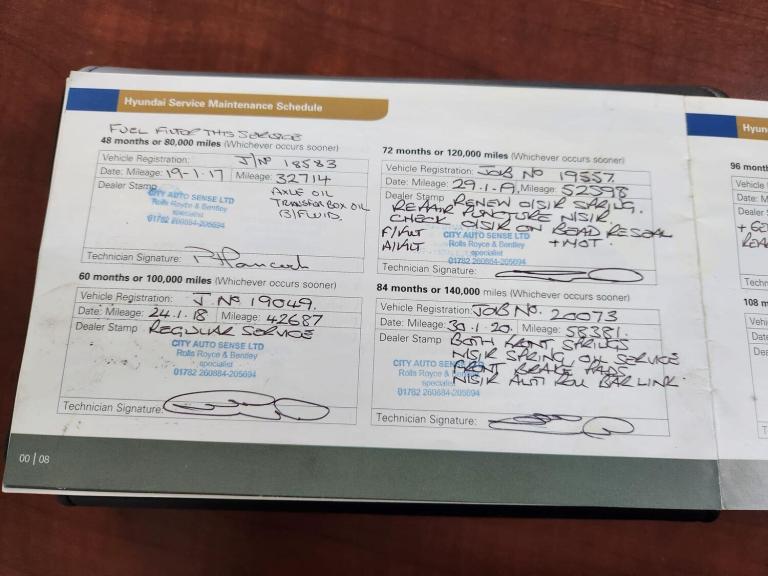 Hyundai Service Maintenance Schedule
FUEL FILTER THIS SERVICE
48 months or 80,000 miles (Whichever occurs sooner)
Vehicle Registration: J/Nº 18583
Date: Mileage: 19-1-17 Mileage: 32714
Dealer Stamp AXLE OIL
TRANSFER BOX OIL
B/FLUID.
CITY AUTO SENSE LTD
Rolls Royce & Bentley
specialist
01782 260884-205694
Technician Signature:
60 months or 100,000 miles (Whichever occurs sooner)
Vehicle Registration: J. Nº 19049.
Date: Mileage: 24.1.18 Mileage: 42687
Dealer Stamp REGULAR SERVICE
CITY AUTO SENSE LTD
Rolls Royce & Bentley
specialist
01782 260884-205694
Technician Signature:
00 | 08
72 months or 120,000 miles (Whichever occurs sooner)
Vehicle Registration: JOB NO 19557.
Date: Mileage: 29.1-19, Mileage: 52598
Dealer Stamp RENEW O/S/R SPRING.
REPAIR PUNCTURE N/S/R.
CHECK O/S/R ON ROAD RESEAL
F/KIT +MOT.
A/KIT
CITY AUTO SENSE LTD
Rolls Royce & Bentley
specialist
01782 260884-205694
Technician Signature:
84 months or 140,000 miles (Whichever occurs sooner)
Vehicle Registration: JOB NO. 20073
Date: Mileage: 30.1.20. Mileage: 58381.
Dealer Stamp BOTH FRONT SPRINGS
N/S/R SPRING OIL SERVICE
FRONT BRAKE PADS
N/S/R ANTI ROLL BAR LINK.
CITY AUTO SENSE LTD
Rolls Royce &
specialist
01782 260884-205694
Technician Signature:
Hyun
96 month
Vehicle
Date: M
Dealer S
Techn
108 m
Vehi
Da
De